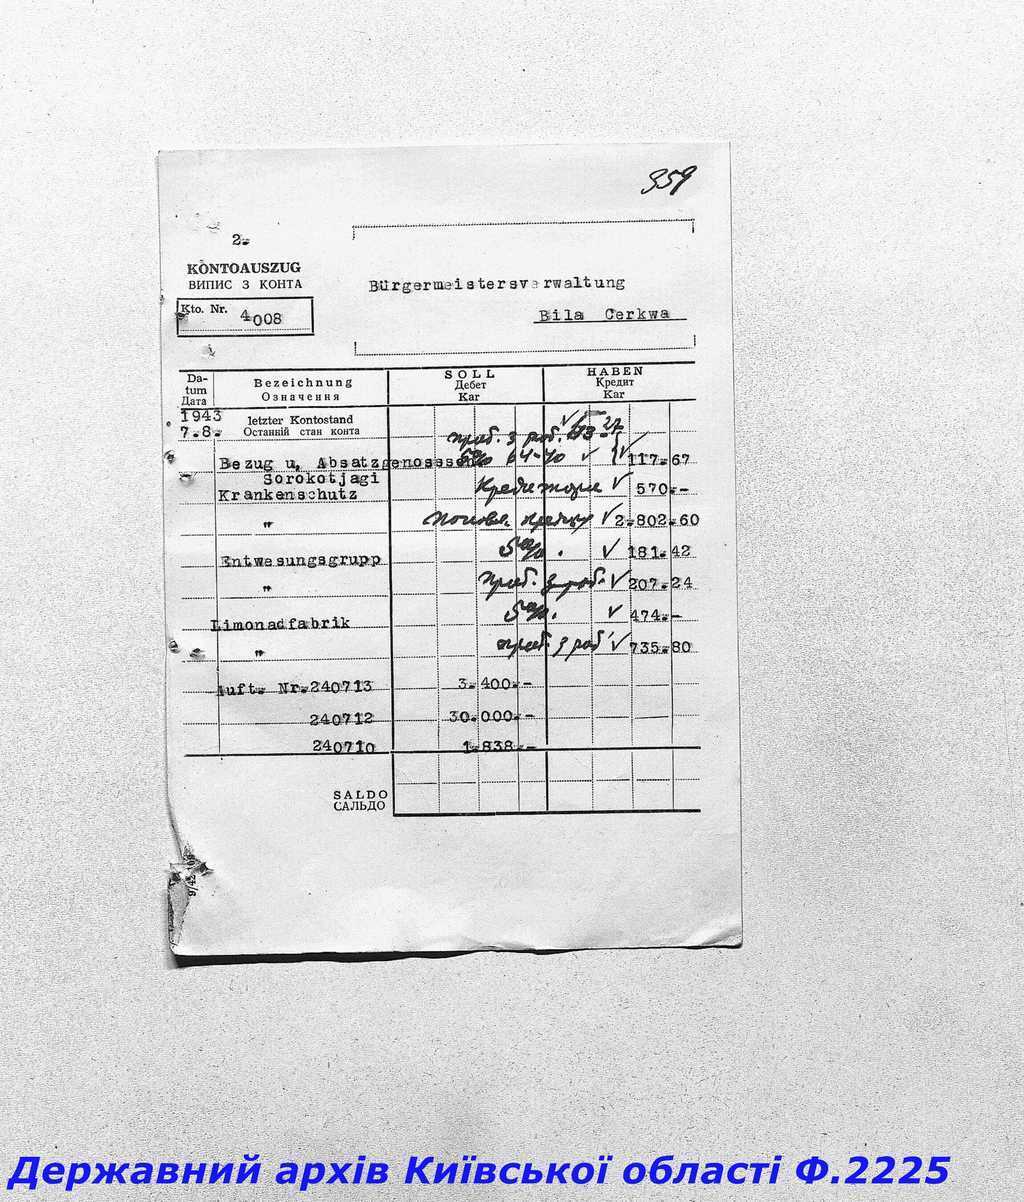 359
2.-
KONTOAUSZUG
ВИПИС З КОНТА
Kto. Nr. 4008
Bürgermeistersverwaltung
Bila Cerkwa
Da-
tum
Дата
Bezeichnung
Означення
SOLL
Дебет
Kar
HABEN
Кредит
Kar
1943
7.8.
letzter Kontostand
Останній стан конта
приб. з роб. 53-27
Bezug u, Absatzgenosssen 5% 64-40 117.67
Sorokotjagi
Krankenschutz 570.-
" 2.802.60
Entwasungsgrupp 5% 181.42
" приб. з роб. 207.24
Limonadfabrik 5% 474.-
" приб. з роб. 735.80
Auft. Nr.240713 3.400.-
240712 30.000.-
240710 1.838.-
SALDO
САЛЬДО
Державний архів Київської області Ф.2225